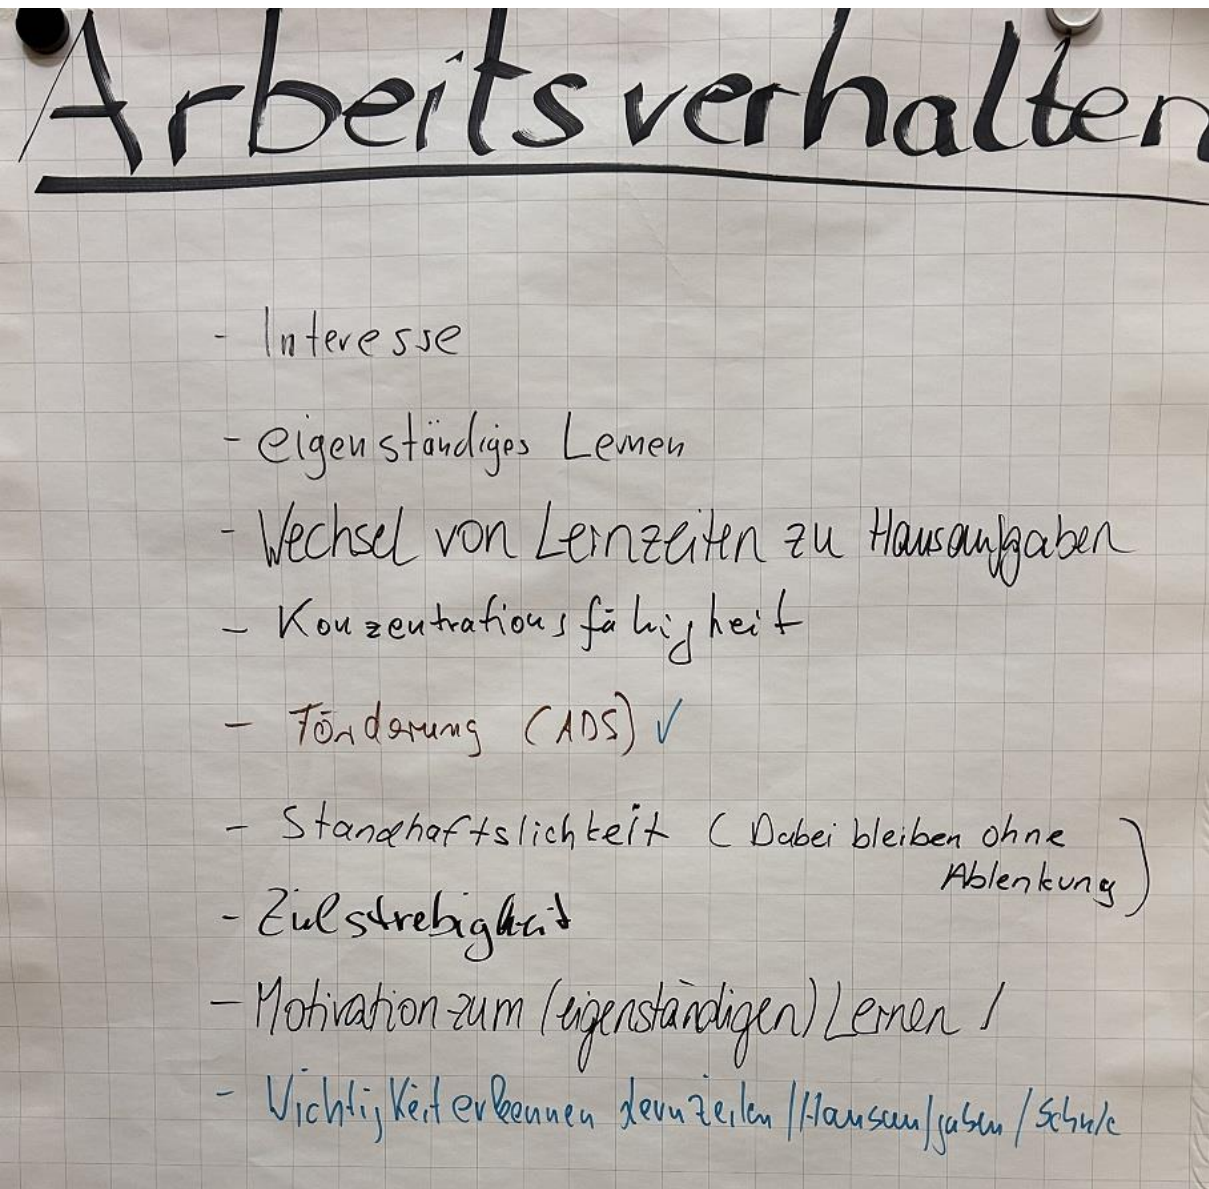 Arbeitsverhalten
- Interesse
- eigenständiges Lernen
- Wechsel von Lernzeiten zu Hausaufgaben
- Konzentrationsfähigkeit
- Förderung (ADS) ✓
- Standhaftslichkeit ( Dabei bleiben ohne
Ablenkung )
- Zielstrebigkeit
- Motivation zum (eigenständigen) Lernen /
- Wichtigkeit erkennen Lernzeiten / Hausaufgaben / Schule